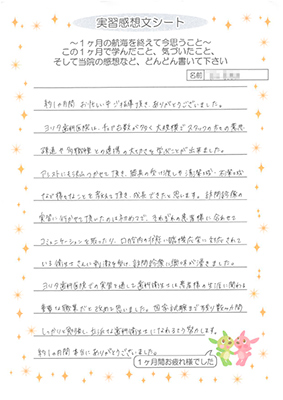 実習感想文シート
～1ヶ月の航海を終えて今思うこと～
この1ヶ月で学んだこと、気づいたこと、
そして当院の感想など、どんどん書いて下さい
名前
約1ヶ月間 お忙しい中ご指導頂き、ありがとうございました。
ヨリタ歯科医院は、チェア台数が多く大規模でスタッフの方との意思
疎通や多職種との連携の大切さを学ぶことが出来ました。
アシストにも沢山つかせて頂き、器具の受け渡しや
など様々なことを教えて頂き、成長できたと思います。訪問診療の
実習に行かせて頂いたのは初めてで、それぞれの患者様に合わせて
コミュニケーションを取ったり、口腔内の
いる衛生士さんに刺激を受け訪問診療に興味が湧きました。
ヨリタ歯科医院での実習を通して歯科衛生士は患者様の生活に関わる
重要な職業だと改めて思いました。国家試験まで残り数ヶ月間
しっかりと勉強し立派な歯科衛生士になれるよう努力します。
約1ヶ月間 本当にありがとうございました。
1ヶ月間お疲れ様でした